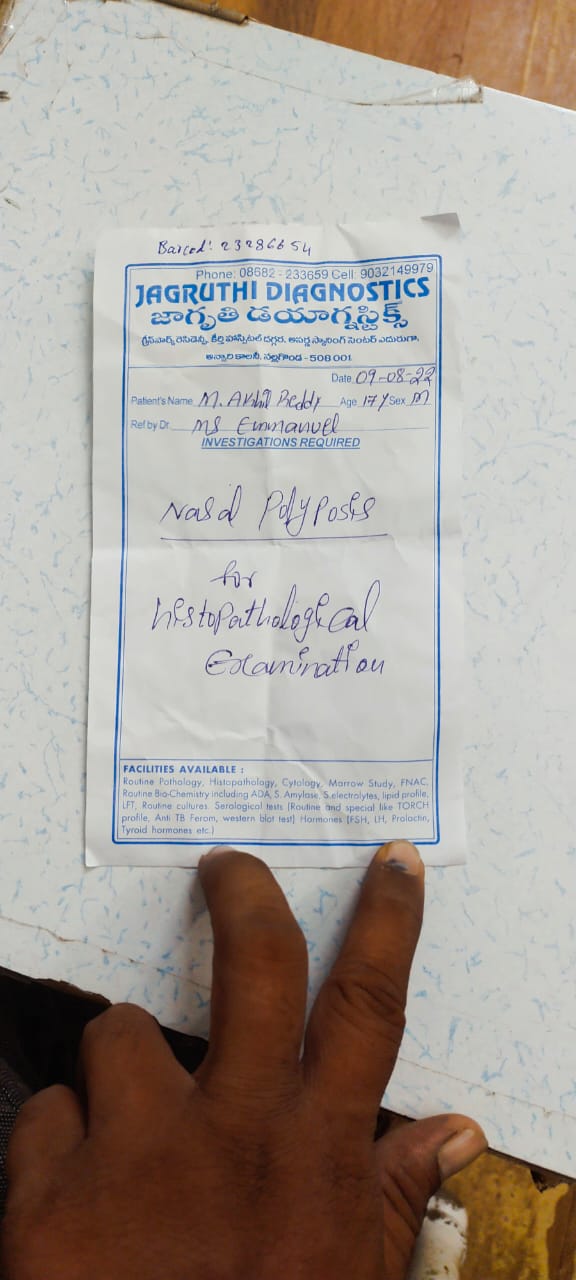 Barcod: 23286654
Phone: 08682 - 233659 Cell: 9032149979
JAGRUTHI DIAGNOSTICS
జాగృతి డయాగ్నస్టిక్స్
గ్రీన్‌పార్క్ రెసిడెన్సి, కీర్తి హాస్పిటల్ దగ్గర, అపర్ణ స్కానింగ్ సెంటర్ ఎదురుగా,
అన్సారి కాలనీ, నల్లగొండ - 508 001.
Date 09-08-22
Patient's Name M. Akhil Reddy Age 17 Y Sex M
Ref by Dr. MS Emmanuel
INVESTIGATIONS REQUIRED
Nasal Polyposis
for
histopathological
Examination
FACILITIES AVAILABLE :
Routine Pathology, Histopathology, Cytology, Marrow Study, FNAC,
Routine Bio-Chemistry including ADA, S. Amylase, S.electrolytes, lipid profile,
LFT, Routine cultures. Serological tests (Routine and special like TORCH
profile, Anti TB Ferom, western blot test) Hormones (FSH, LH, Prolactin,
Tyroid hormones etc.)